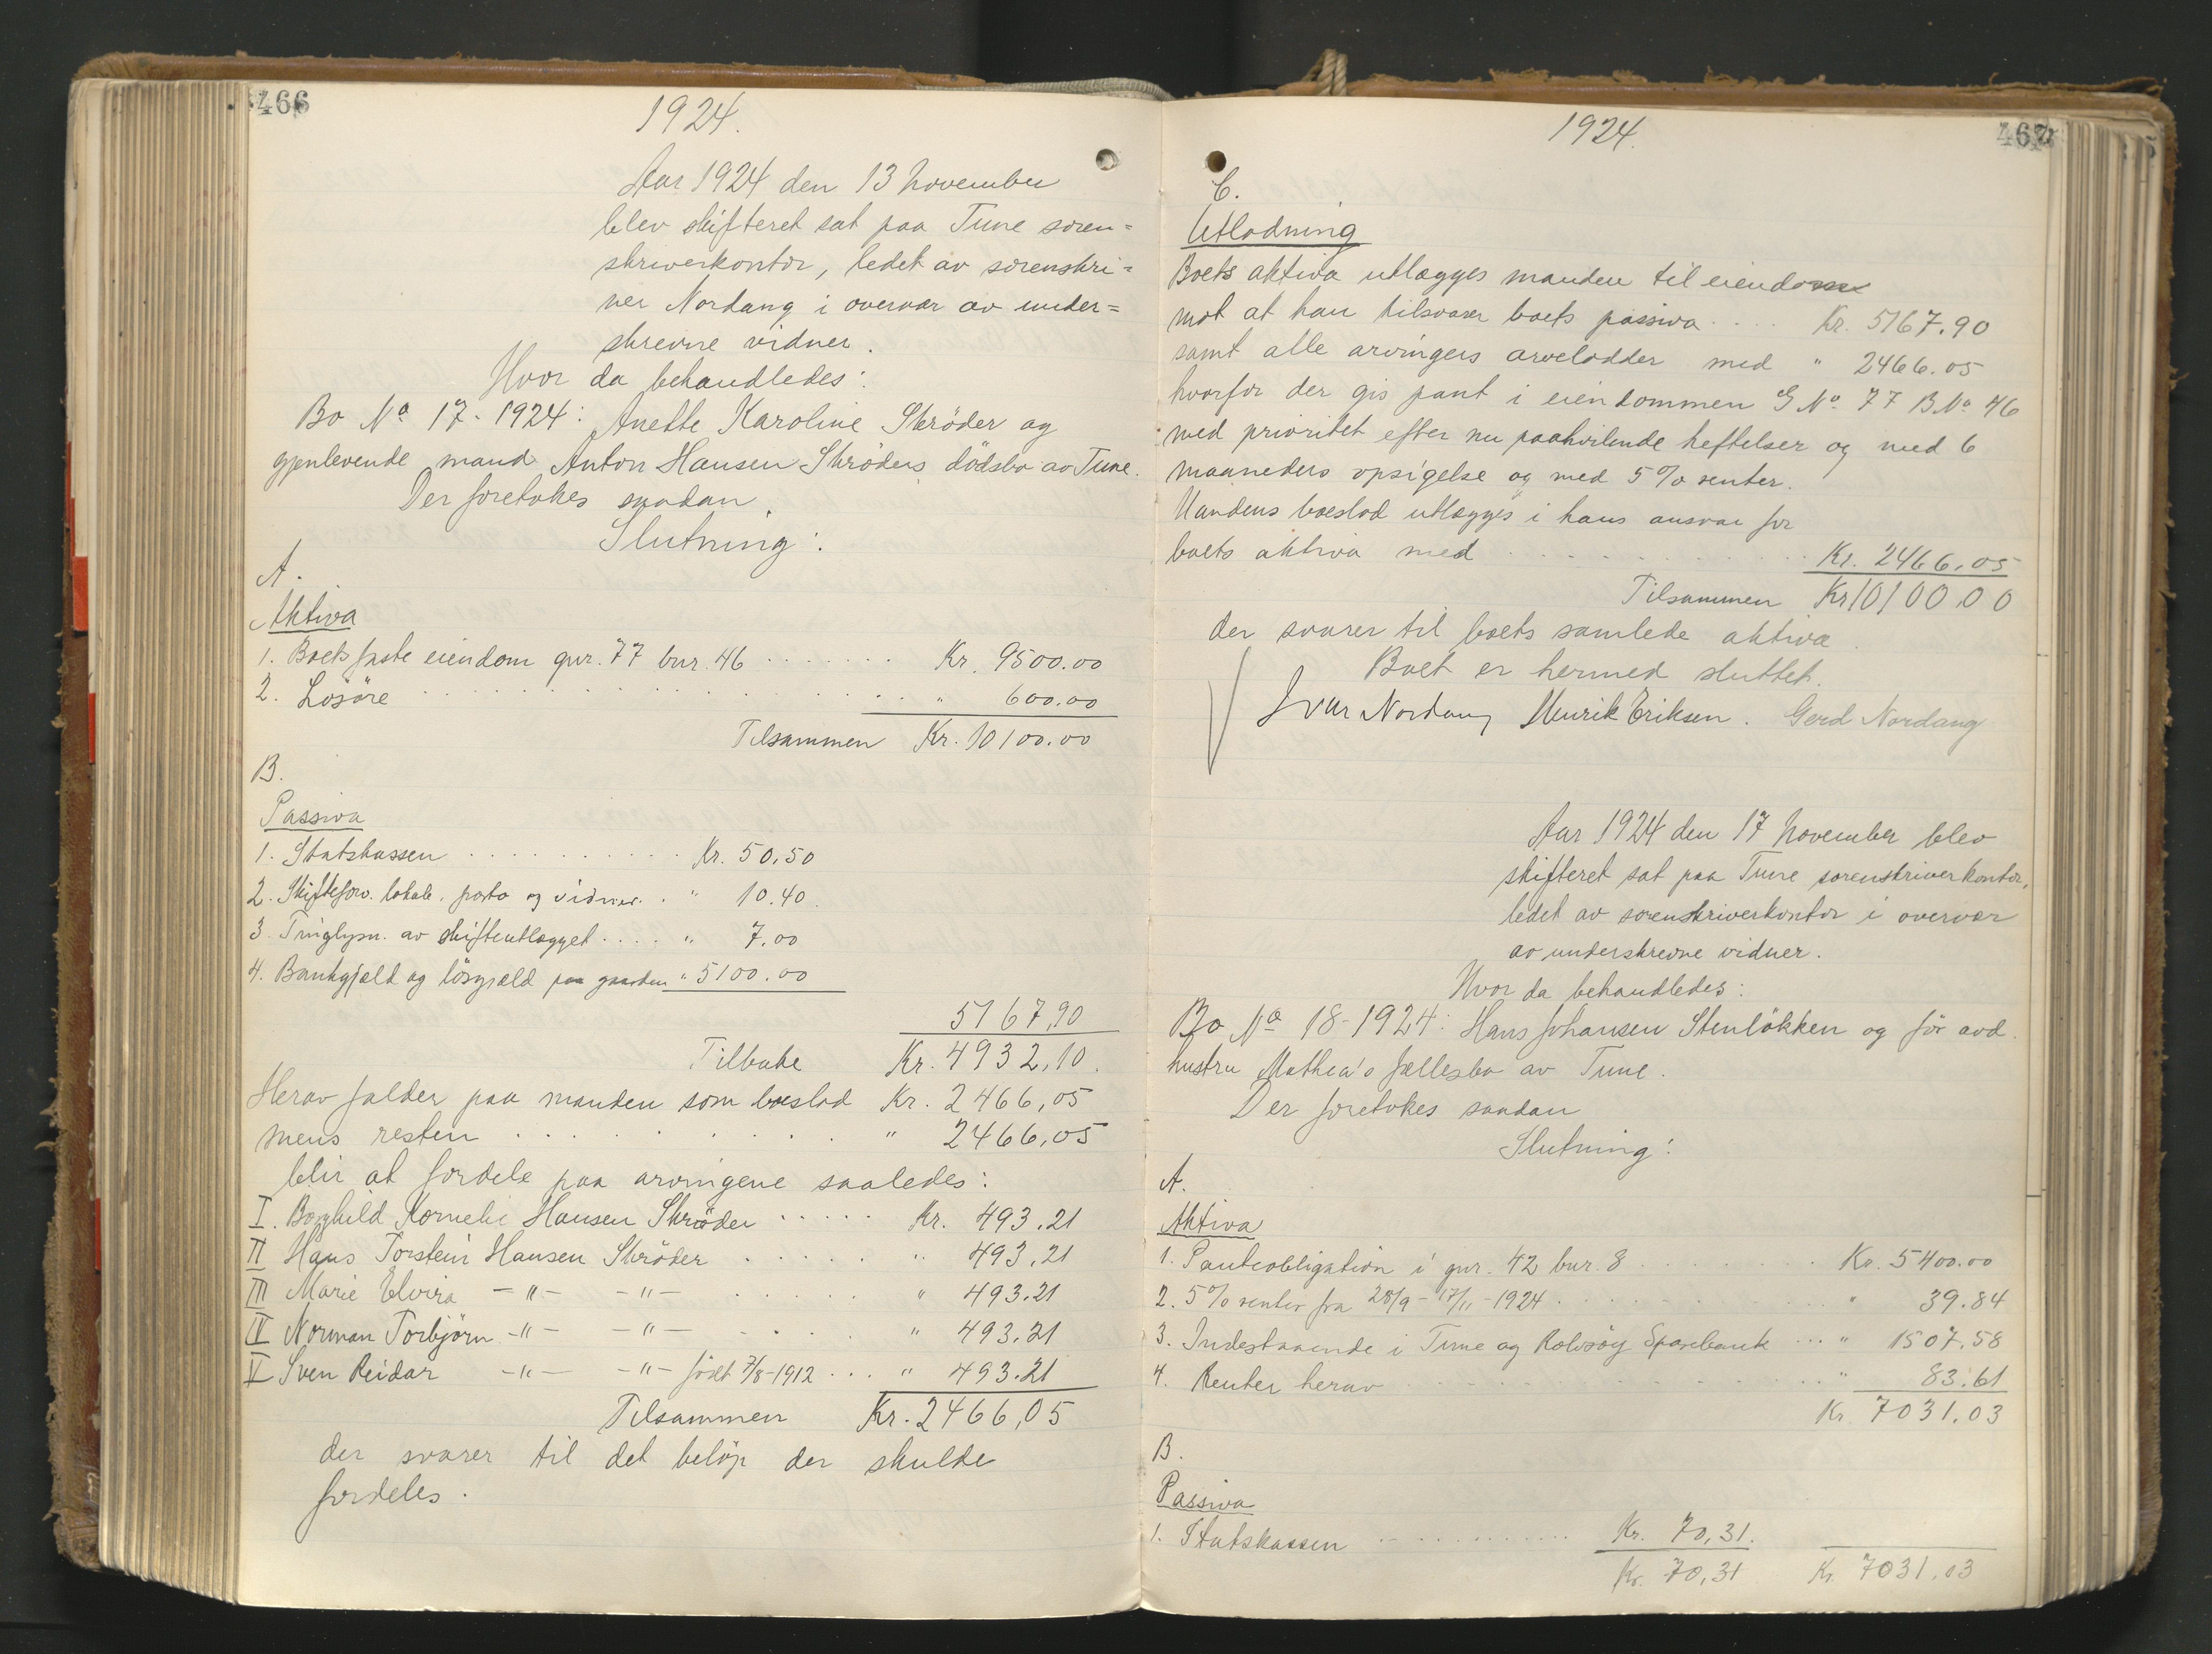 466
1924.
Aar 1924 den 13 november
blev skifteret sat paa Tune soren=
skriverkontor, ledet av sorenskri=
ver Nordang i overvær av under=
skrevne vidner.
Hvor da behandledes:
Bo No 17 - 1924: Anette Karoline Skröder og
gjenlevende mand Anton Hansen Skröders dödsbo av Tune.
Der foretokes saadan
Slutning:
A.
Aktiva
1. Boets faste eiendom gnr. 77 bnr. 46 ....... Kr. 9500.00
2. Lösöre ....... " 600.00
Tilsammen Kr. 10100.00
B.
Passiva
1. Statskassen .......... Kr. 50,50
2. Skifteforv. lokale, porto og vidner. . " 10.40
3. Tinglysn. av skifteutlægget .... " 7.00
4. Bankgjæld og lösgjæld paa gaarden " 5100.00
5167,90
Tilbake Kr. 4932,10.
Herav falder paa manden som boeslod Kr. 2466,05
mens resten .......... " 2466,05
blir at fordele paa arvingene saaledes:
I. Borghild Kornelie Hansen Skröder ..... Kr. 493.21
II Hans Torstein Hansen Skröder ..... " 493,21
III Marie Elvira -"- -"- ..... " 493.21
IV Norman Torbjörn -"- -"- ..... " 493,21
V Sven Reidar -"- -"- födt 7/8-1912 ... " 493.21
Tilsammen Kr. 2466,05
der svarer til det belöp der skulde
fordeles.
467
1924.
C.
Utlodning
Boets aktiva utlægges manden til eiendom
mot at han tilsvarer boets passiva .... Kr. 5167.90
samt alle arvingers arvelodder med " 2466.05
hvorfor der gis pant i eiendommen G No. 77 B No. 46
med prioritet efter nu paahvilende heftelser og med 6
maaneders opsigelse og med 5 % renter.
Mandens boeslod utlægges i hans ansvar for
boets aktiva med .......... Kr. 2466,05
Tilsammen Kr 10100.00
der svarer til boets samlede aktiva.
Boet er hermed sluttet.
Ivar Nordang Henrik Eriksen. Gerd Nordang
Aar 1924 den 17 november blev
skifteret sat paa Tune sorenskriverkontor,
ledet av sorenskriverkontor i overvær
av underskrevne vidner.
Hvor da behandledes:
Bo No 18 - 1924: Hans Johansen Stenlökken og för avd.
hustru Mathea's fællesbo av Tune.
Der foretokes saadan
Slutning:
A.
Aktiva
1. Panteobligation i gnr. 42 bnr. 8 ........ Kr. 5400.00
2. 5 % renter fra 28/9 - 17/11 - 1924 .......... " 39.84
3. Indestaaende i Tune og Rolvsöy Sparebank ... " 1507.58
4. Renter herav .......... " 83.61
Kr. 7031.03
B.
Passiva
1. Statskassen .......... Kr. 70,31.
Kr. 70,31 Kr. 7031.03